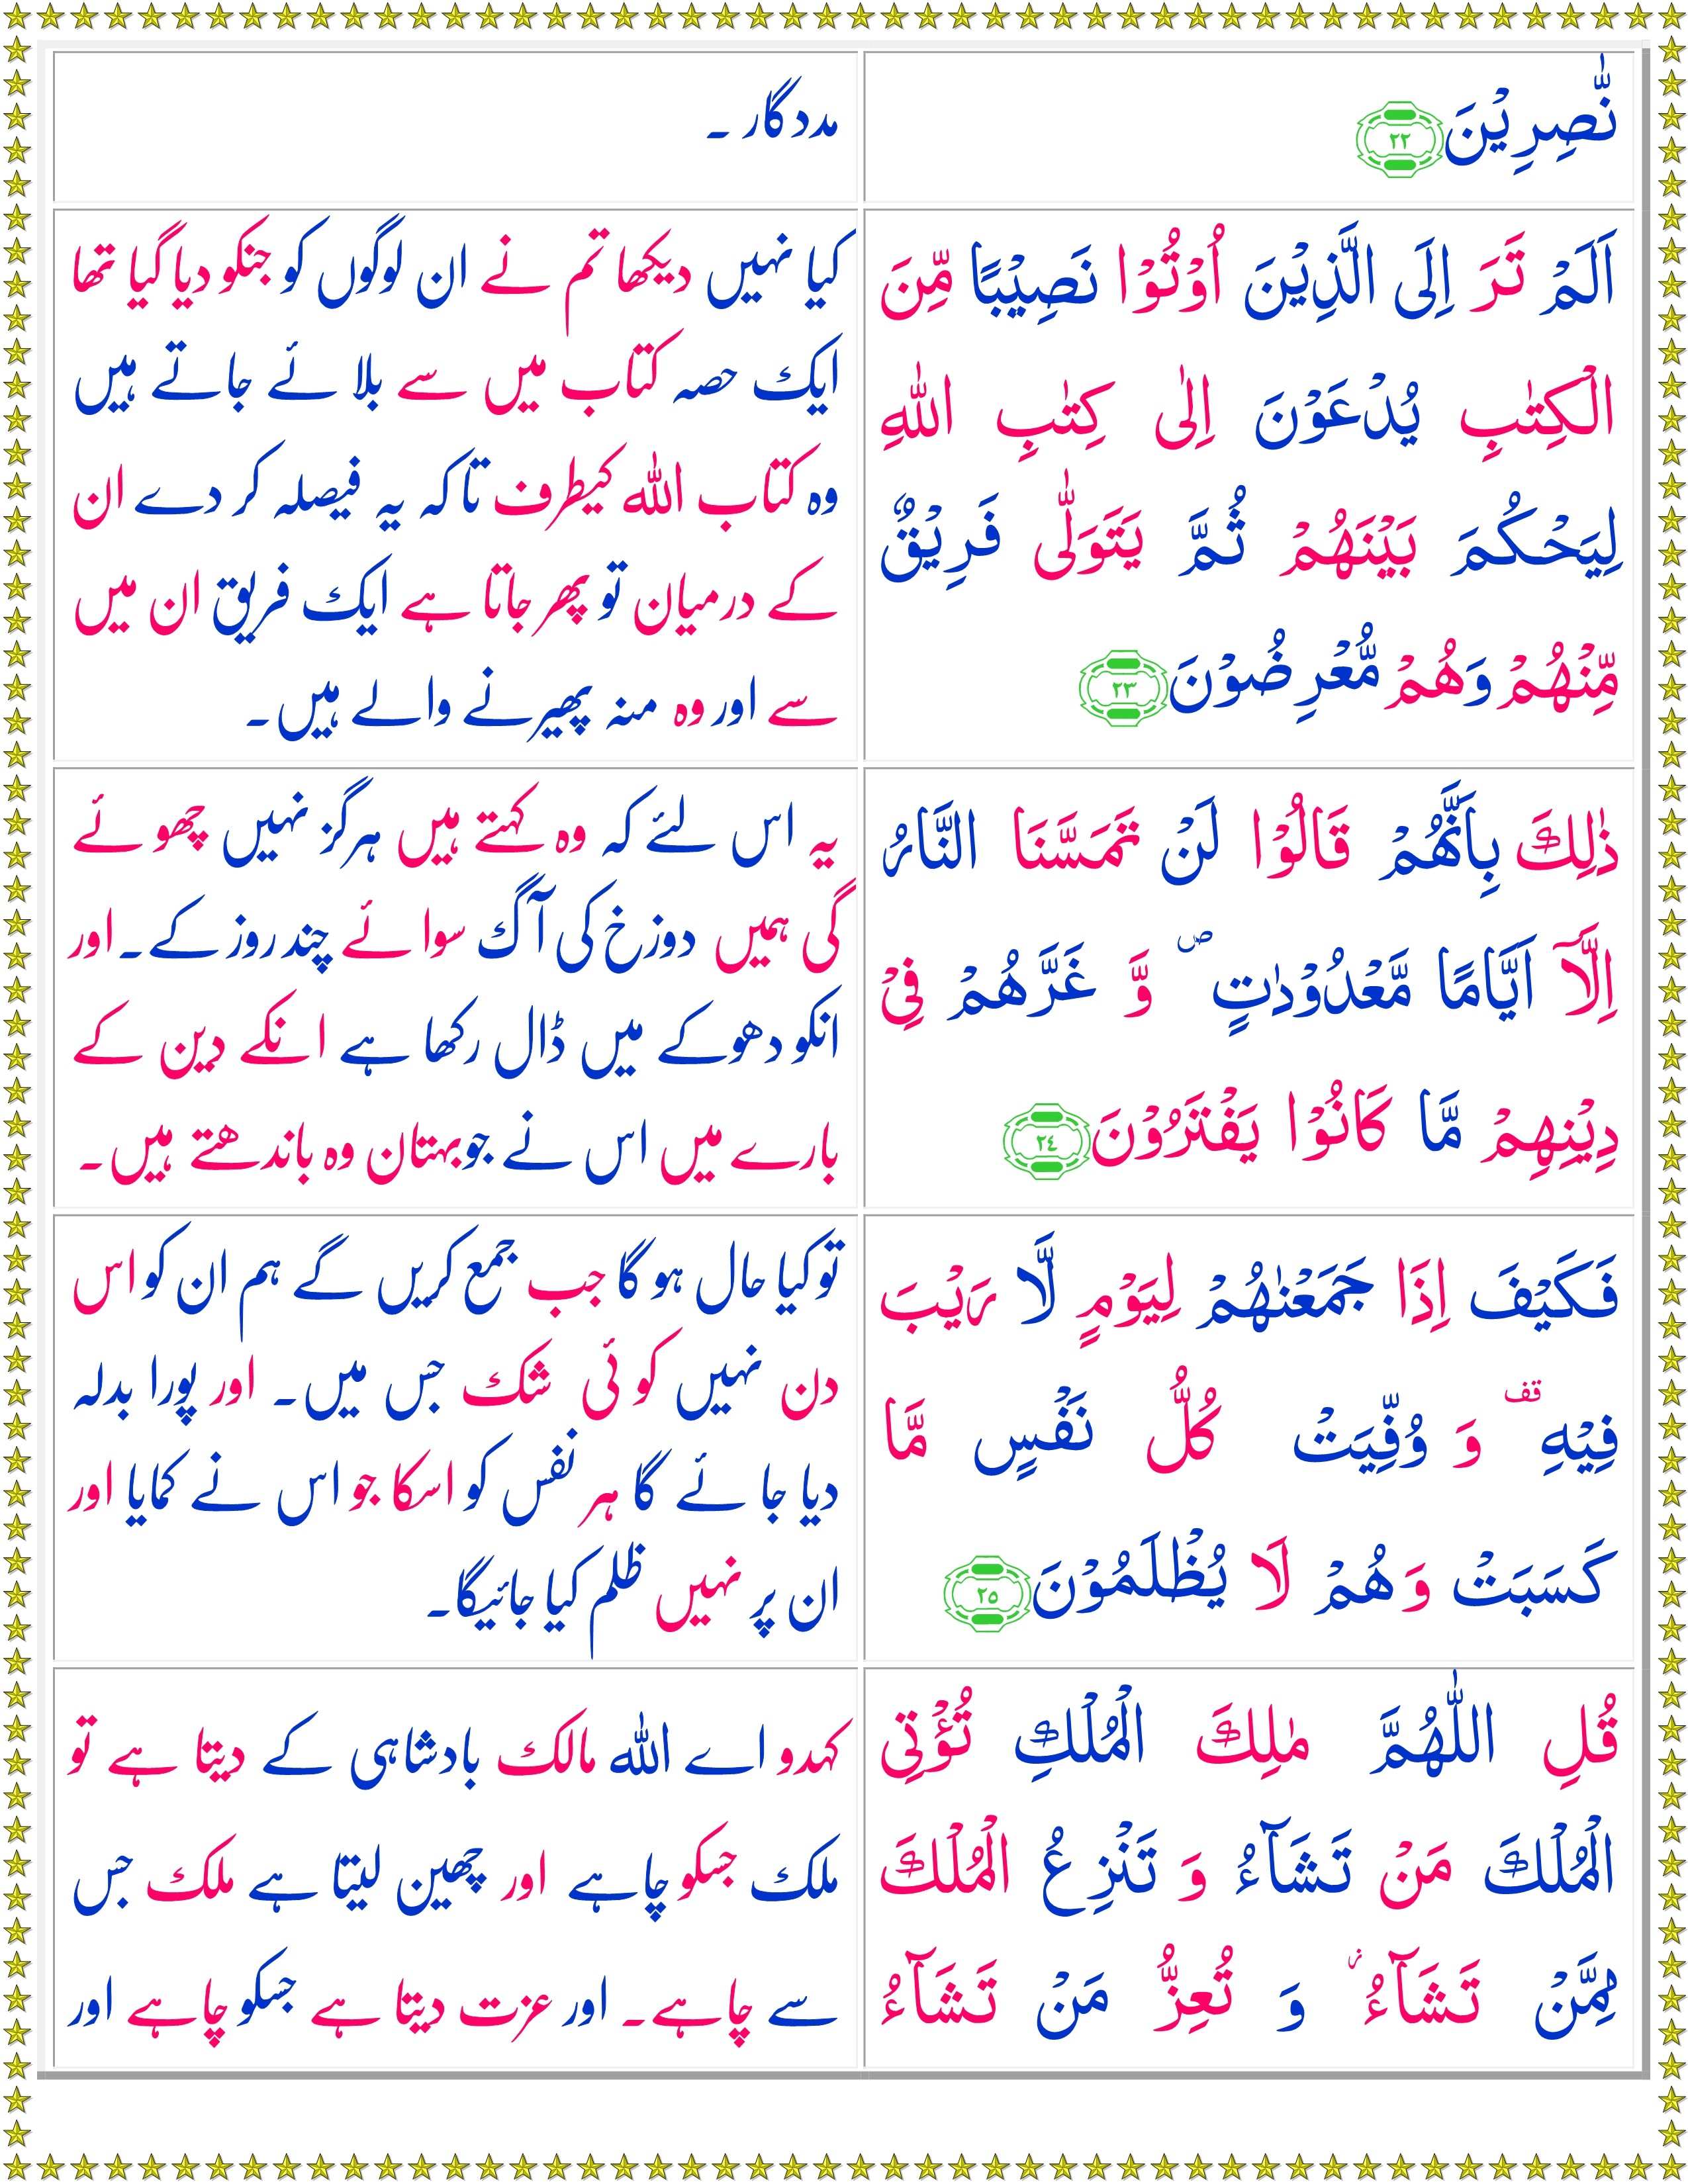 نّٰصِرِیۡنَ ﴿۲۲﴾
مددگار ۔
اَلَمۡ تَرَ اِلَی الَّذِیۡنَ اُوۡتُوۡا نَصِیۡبًا مِّنَ
الۡکِتٰبِ یُدۡعَوۡنَ اِلٰی کِتٰبِ اللّٰہِ
لِیَحۡکُمَ بَیۡنَہُمۡ ثُمَّ یَتَوَلّٰی فَرِیۡقٌ
مِّنۡہُمۡ وَہُمۡ مُّعۡرِضُوۡنَ ﴿۲۳﴾
کیا نہیں دیکھا تم نے ان لوگوں کو جنکو دیا گیا تھا
ایک حصہ کتاب میں سے بلائے جاتے ہیں
وہ کتاب اللہ کیطرف تاکہ یہ فیصلہ کر دے ان
کے درمیان تو پھر جاتا ہے ایک فریق ان میں
سے اور وہ منہ پھیرنے والے ہیں۔
ذٰلِکَ بِاَنَّہُمۡ قَالُوۡا لَنۡ تَمَسَّنَا النَّارُ
اِلَّاۤ اَیَّامًا مَّعۡدُوۡدٰتٍ ۪ وَّ غَرَّہُمۡ فِیۡ
دِیۡنِہِمۡ مَّا کَانُوۡا یَفۡتَرُوۡنَ ﴿۲۴﴾
یہ اس لئے کہ وہ کہتے ہیں ہرگز نہیں چھوئے
گی ہمیں دوزخ کی آگ سوائے چند روز کے۔ اور
انکو دھوکے میں ڈال رکھا ہے انکے دین کے
بارے میں اس نے جو بہتان وہ باندھتے ہیں۔
فَکَیۡفَ اِذَا جَمَعۡنٰہُمۡ لِیَوۡمٍ لَّا رَیۡبَ
فِیۡہِ ۟ وَ وُفِّیَتۡ کُلُّ نَفۡسٍ مَّا
کَسَبَتۡ وَ ہُمۡ لَا یُظۡلَمُوۡنَ ﴿۲۵﴾
تو کیا حال ہو گا جب جمع کریں گے ہم ان کو اس
دن نہیں کوئی شک جس میں۔ اور پورا بدلہ
دیا جائے گا ہر نفس کو اسکا جو اس نے کمایا اور
ان پر نہیں ظلم کیا جائیگا۔
قُلِ اللّٰہُمَّ مٰلِکَ الۡمُلۡکِ تُؤۡتِی
الۡمُلۡکَ مَنۡ تَشَآءُ وَ تَنۡزِعُ الۡمُلۡکَ
مِمَّنۡ تَشَآءُ ۫ وَ تُعِزُّ مَنۡ تَشَآءُ
کہدو اے اللہ مالک بادشاہی کے دیتا ہے تو
ملک جسکو چاہے اور چھین لیتا ہے ملک جس
سے چاہے۔ اور عزت دیتا ہے جسکو چاہے اور